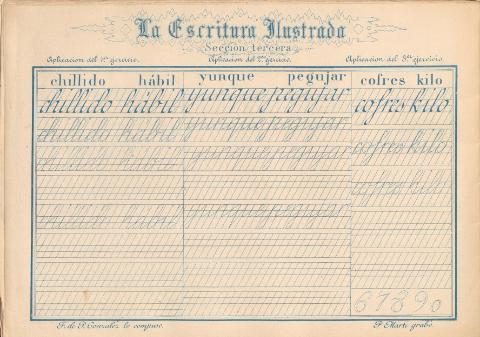 La Escritura Ilustrada
Sección tercera
Aplicacion del 1er. ejercicio. Aplicacion del 2º. ejercicio. Aplicacion del 3er. ejercicio.
chillido hábil yunque pegujar cofres kilo
chillido hábil yunque pegujar cofres kilo
chillido hábil yunque pegujar
cofres kilo
chillido hábil yunque pegujar
cofres kilo
chillido hábil yunque pegujar
67890
F. de P. Gonzalez lo compuso. P. Martí grabó.